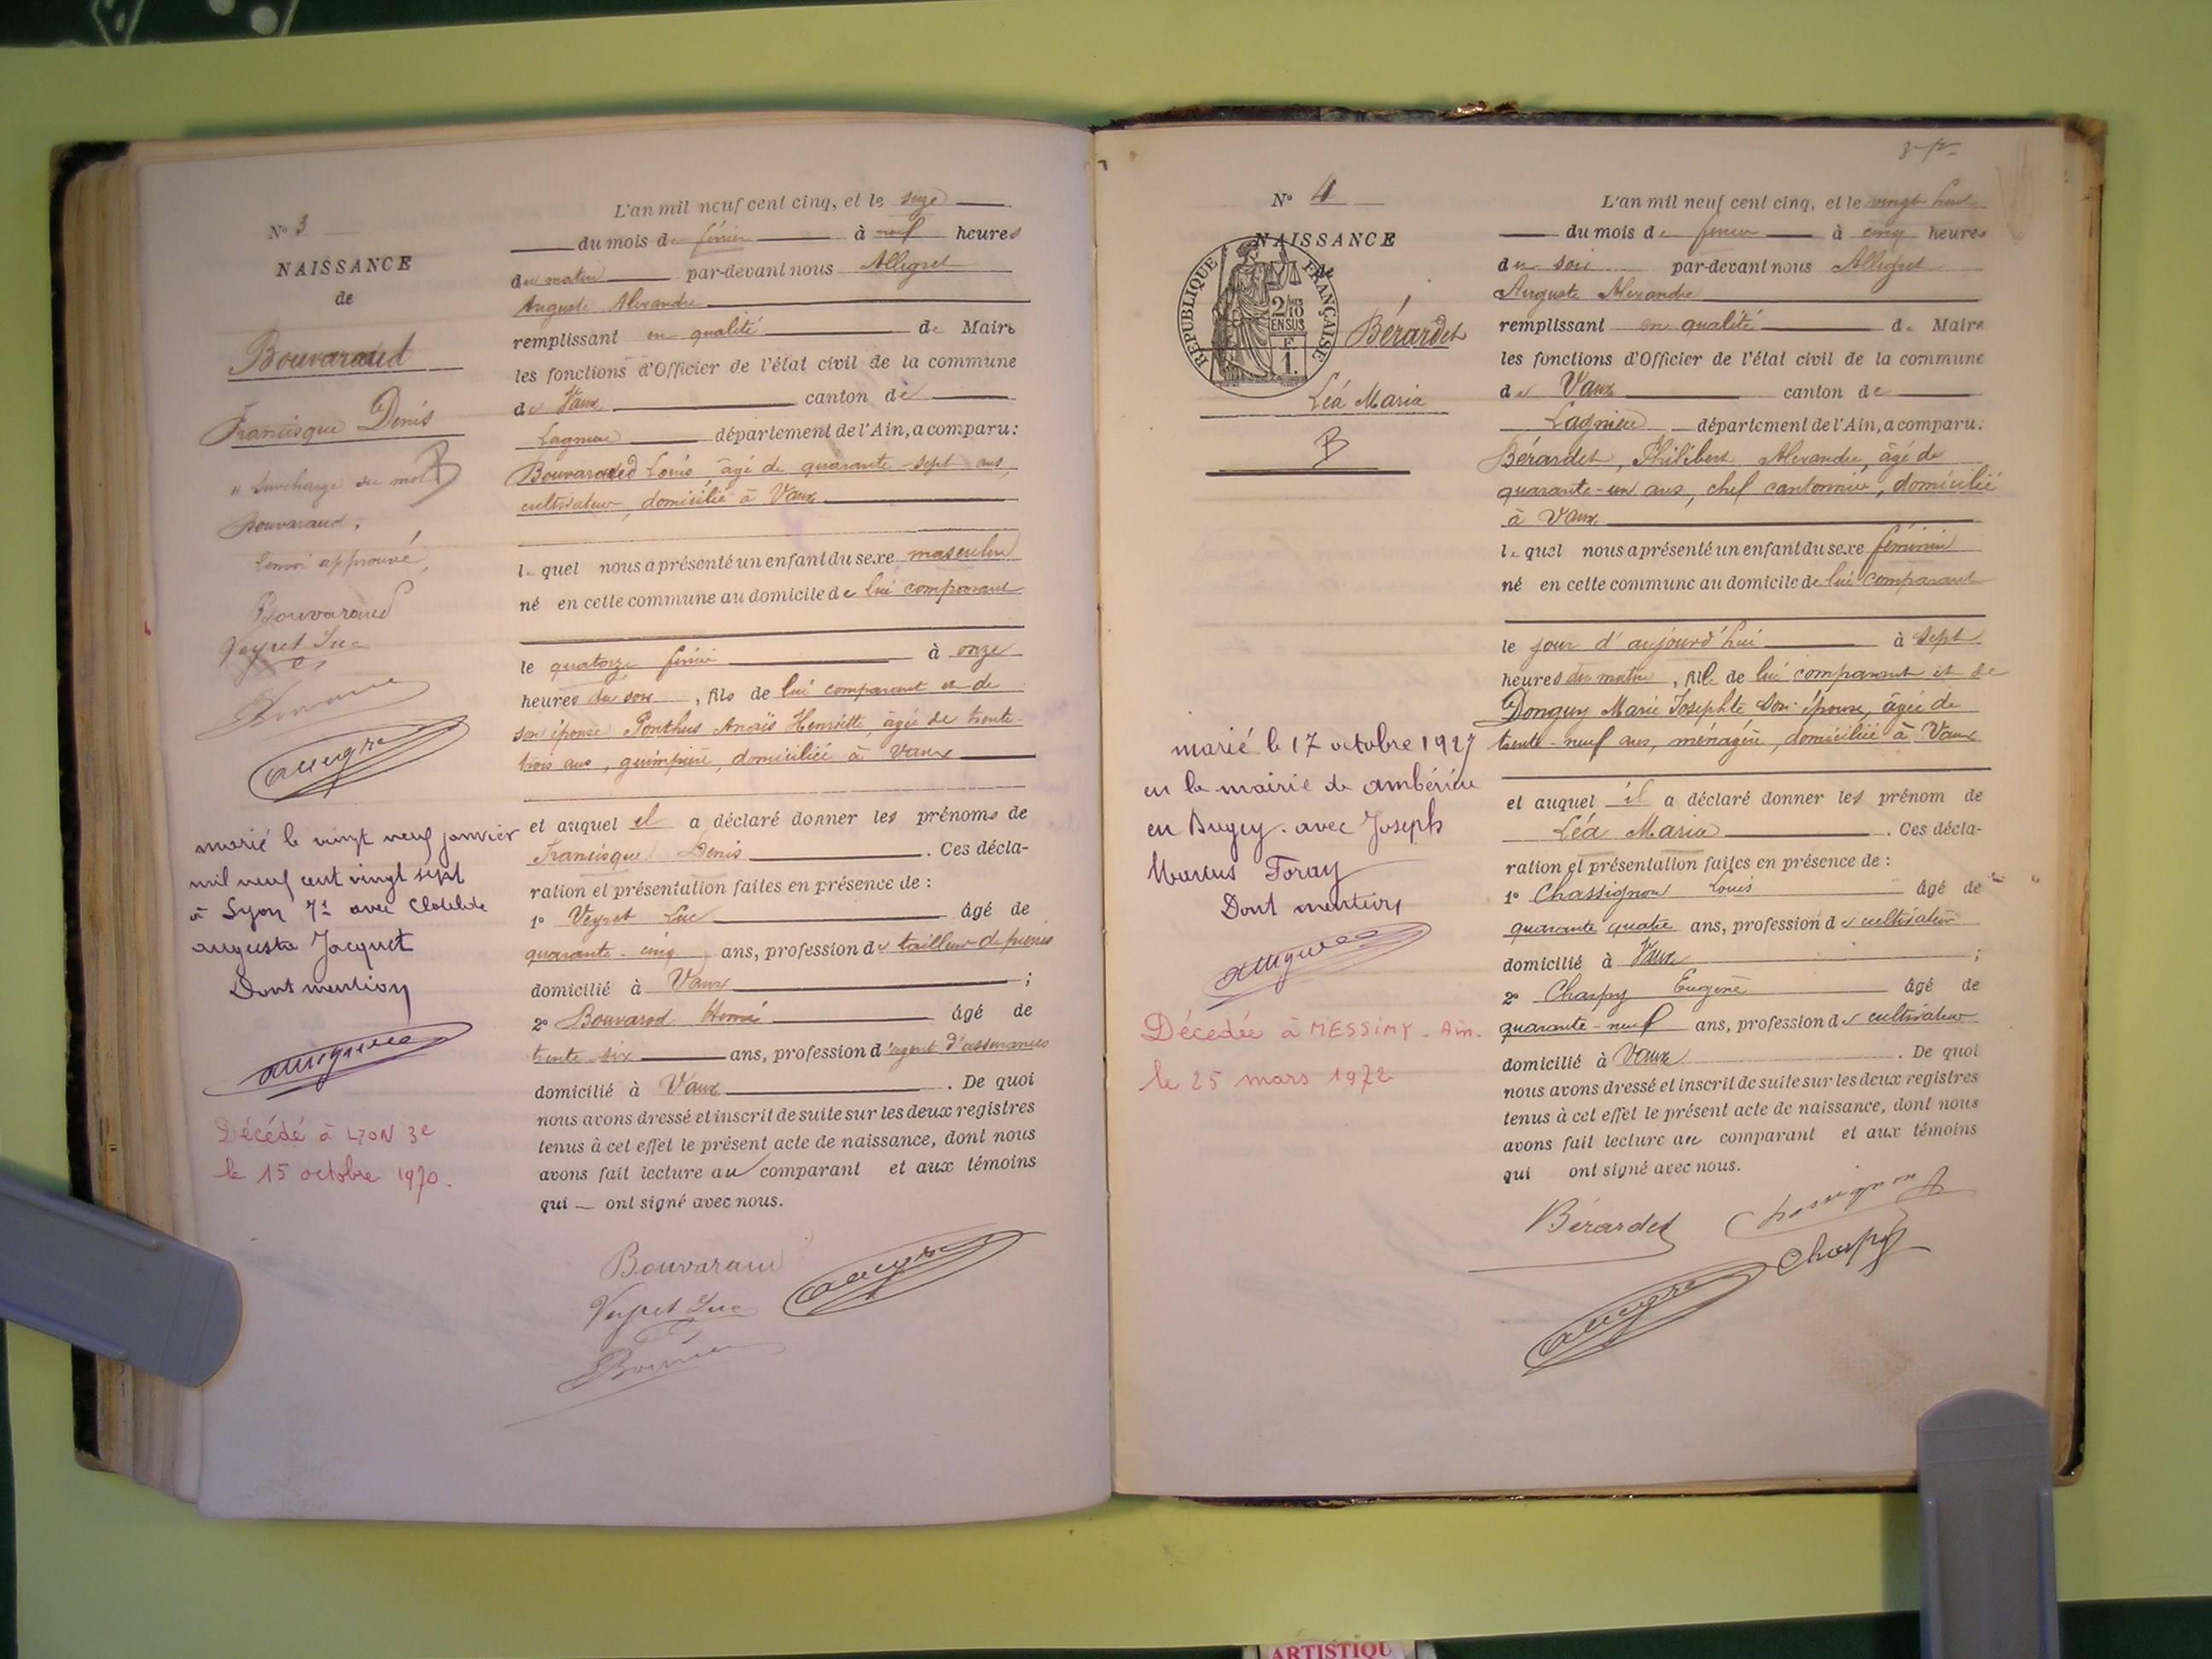 N° 3
NAISSANCE
de
Bouvaraud
Francisque Denis
B
" Surcharge du mot
Bouvaraud,
approuvé
Bouvaraud
Veyret Luc
marié le vingt neuf janvier
mil neuf cent vingt sept
à Lyon 7e avec Clotilde
augusta Jacquet
Dont mention
Décédé à LYON 3e
le 15 octobre 1970.
L'an mil neuf cent cinq, et le seize
du mois de février à neuf heures
du matin par-devant nous Allegret
Auguste Alexandre
remplissant en qualité de Maire
les fonctions d'Officier de l'état civil de la commune
de Vaux canton de
Lagnieu département de l'Ain, a comparu:
Bouvaraud Louis âgé de quarante-sept ans,
cultivateur, domicilié à Vaux
le quel nous a présenté un enfant du sexe masculin
né en cette commune au domicile de lui comparant
le quatorze février à onze
heures du soir, fils de lui comparant et de
son épouse Ponthus Anaïs Henriette, âgée de trente-
trois ans, guimpière, domiciliée à Vaux
et auquel il a déclaré donner les prénoms de
Francisque Denis. Ces décla-
ration et présentation faites en présence de:
1° Veyret Luc âgé de
quarante-cinq ans, profession de tailleur de pierres
domicilié à Vaux;
2° Bouvarod âgé de
trente six ans, profession d'agent d'assurances
domicilié à Vaux. De quoi
nous avons dressé et inscrit de suite sur les deux registres
tenus à cet effet le présent acte de naissance, dont nous
avons fait lecture au comparant et aux témoins
qui ont signé avec nous.
Bouvaraud
Veyret Luc
N° 4
NAISSANCE
de
REPUBLIQUE FRANÇAISE
2/10
EN SUS
F.
1.
Bérardet
Léa Maria
B
marié le 17 octobre 1927
en la mairie de ambérieu
en Bugey. avec Joseph
Marius Foray
Dont mention
Décédée à MESSIMY - Ain.
le 25 mars 1972
L'an mil neuf cent cinq, et le vingt huit
du mois de février à cinq heures
du soir par-devant nous Allegret
Auguste Alexandre
remplissant en qualité de Maire
les fonctions d'Officier de l'état civil de la commune
de Vaux canton de
Lagnieu département de l'Ain, a comparu:
Bérardet, Philibert Alexandre, âgé de
quarante-un ans, chef cantonnier, domicilié
à Vaux
le quel nous a présenté un enfant du sexe féminin
né en cette commune au domicile de lui comparant
le jour d'aujourd'hui à sept
heures du matin, fille de lui comparant et de
Donguy Marie Josephte son épouse, âgée de
trente-neuf ans, ménagère, domiciliée à Vaux
et auquel il a déclaré donner les prénom de
Léa Maria. Ces décla-
ration et présentation faites en présence de:
1° Chassignon Louis âgé de
quarante quatre ans, profession de cultivateur
domicilié à Vaux;
2° Charpy Eugène âgé de
quarante-neuf ans, profession de cultivateur
domicilié à Vaux. De quoi
nous avons dressé et inscrit de suite sur les deux registres
tenus à cet effet le présent acte de naissance, dont nous
avons fait lecture au comparant et aux témoins
qui ont signé avec nous.
Bérardet Chassignon
Charpy
ARTISTIQU